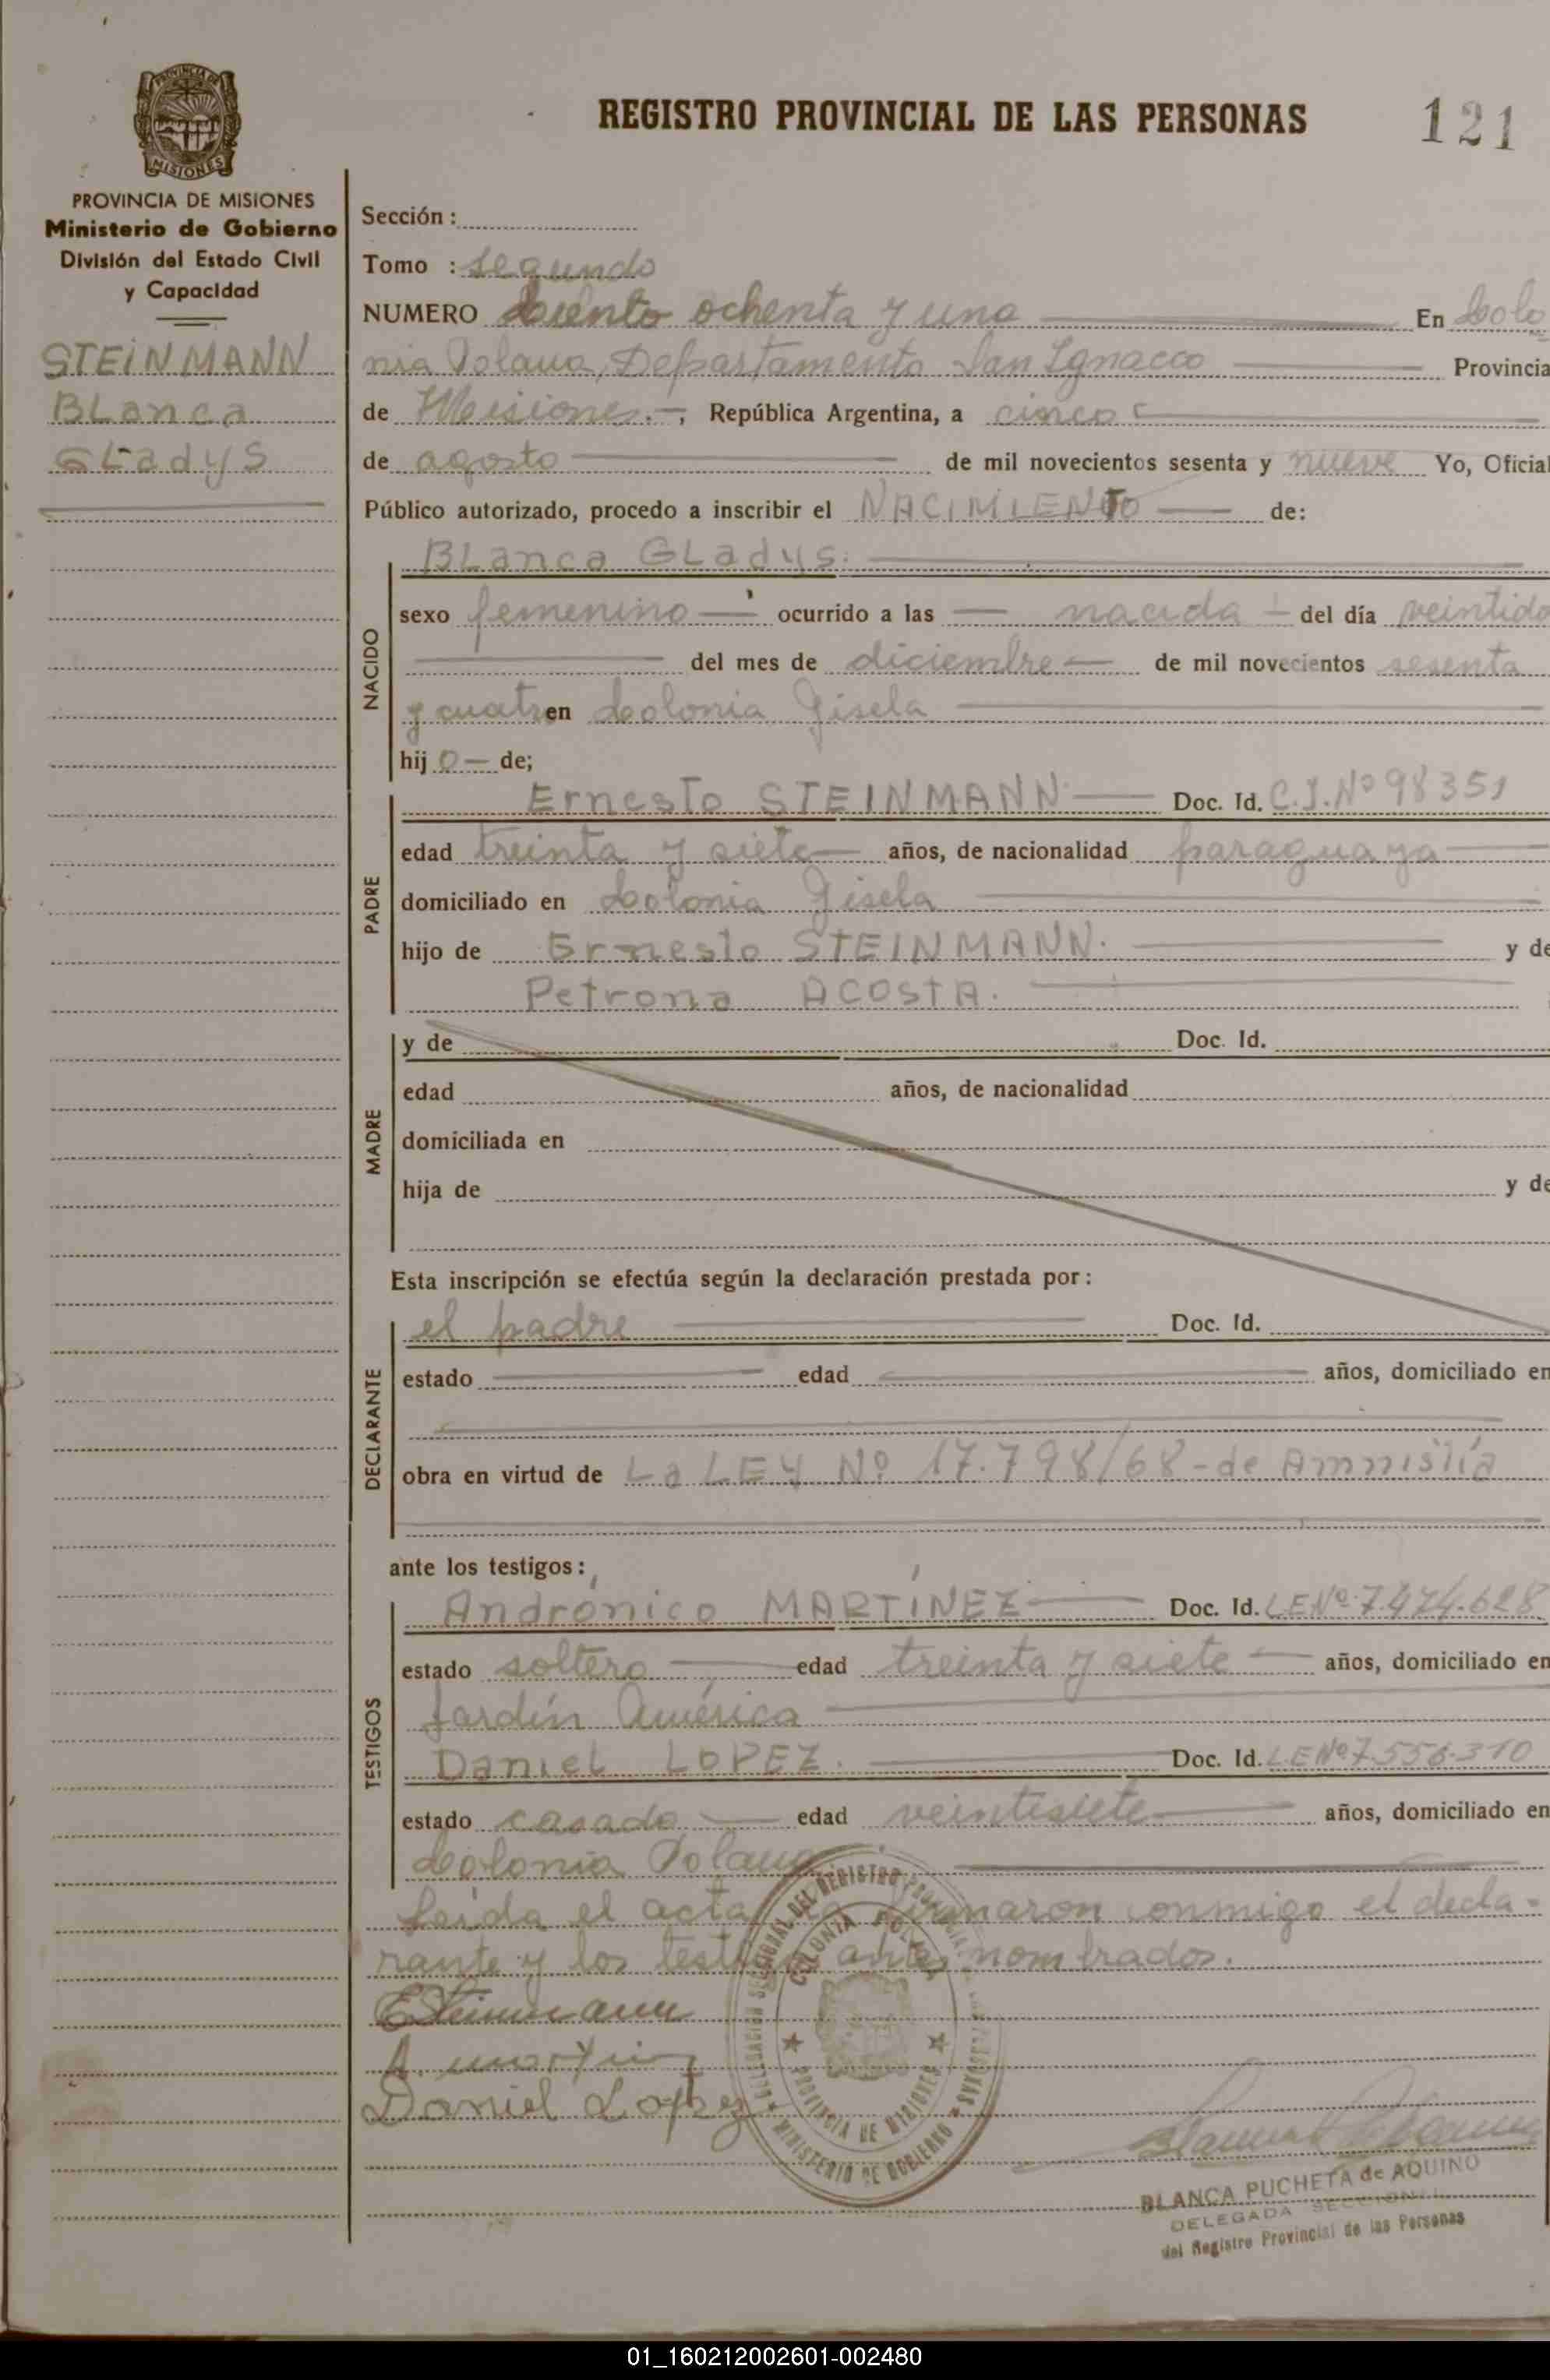 REGISTRO PROVINCIAL DE LAS PERSONAS 121
PROVINCIA DE MISIONES
MISIONES
PROVINCIA DE MISIONES
Ministerio de Gobierno
División del Estado Civil
y Capacidad
STEINMANN
BLanca
GLadys
Sección :
Tomo : segundo
NUMERO ciento ochenta y uno En Colo
nia Polana, Departamento San Ignacio Provincia
de Misiones.-, República Argentina, a cinco
de agosto de mil novecientos sesenta y nueve Yo, Oficial
Público autorizado, procedo a inscribir el NACIMIENTO de:
NACIDO
BLanca GLadys.
sexo femenino ocurrido a las nacida del día veintido
del mes de diciembre de mil novecientos sesenta
y cuatro en Colonia Gisela
hij o de;
PADRE
Ernesto STEINMANN Doc. Id. C.I.Nº 98351
edad treinta y siete años, de nacionalidad paraguaya
domiciliado en Colonia Gisela
hijo de Ernesto STEINMANN. y de
Petrona ACOSTA.
MADRE
y de Doc. Id.
edad años, de nacionalidad
domiciliada en
hija de y de
Esta inscripción se efectúa según la declaración prestada por :
DECLARANTE
el padre Doc. Id.
estado edad años, domiciliado en
obra en virtud de La LEY Nº 17.798/68-de Amnistía
ante los testigos :
TESTIGOS
Andrónico MARTÍNEZ Doc. Id. LE Nº 7.474.628
estado soltero edad treinta y siete años, domiciliado en
Jardín América
Daniel LOPEZ. Doc. Id. LE Nº 7.556.310
estado casado edad veintisiete años, domiciliado en
Colonia Polana
Leída el acta la firmaron conmigo el decla-
rante y los testigos antes nombrados.
ESteinmann
A. martinez
Daniel Lopez
DELEGACION SECCIONAL DEL REGISTRO PROVINCIAL DE LAS PERSONAS
COLONIA POLANA
PROVINCIA DE MISIONES
MINISTERIO DE GOBIERNO
BLANCA PUCHETA de AQUINO
DELEGADA SECCIONAL
del Registro Provincial de las Personas
01_160212002601-002480